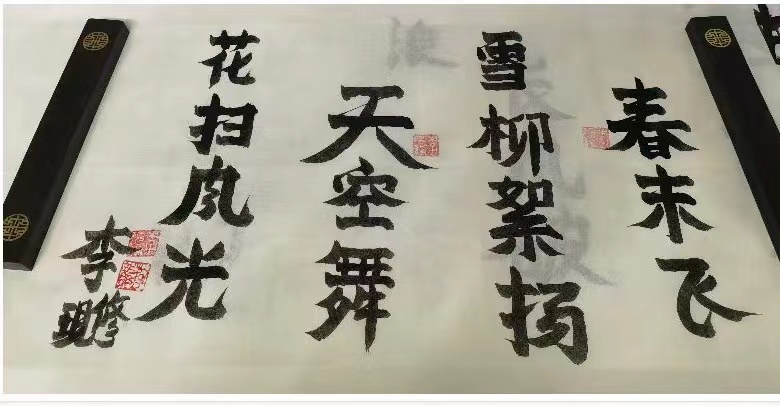 春末飞
雪柳絮扬
天空舞
花扫风光
李修